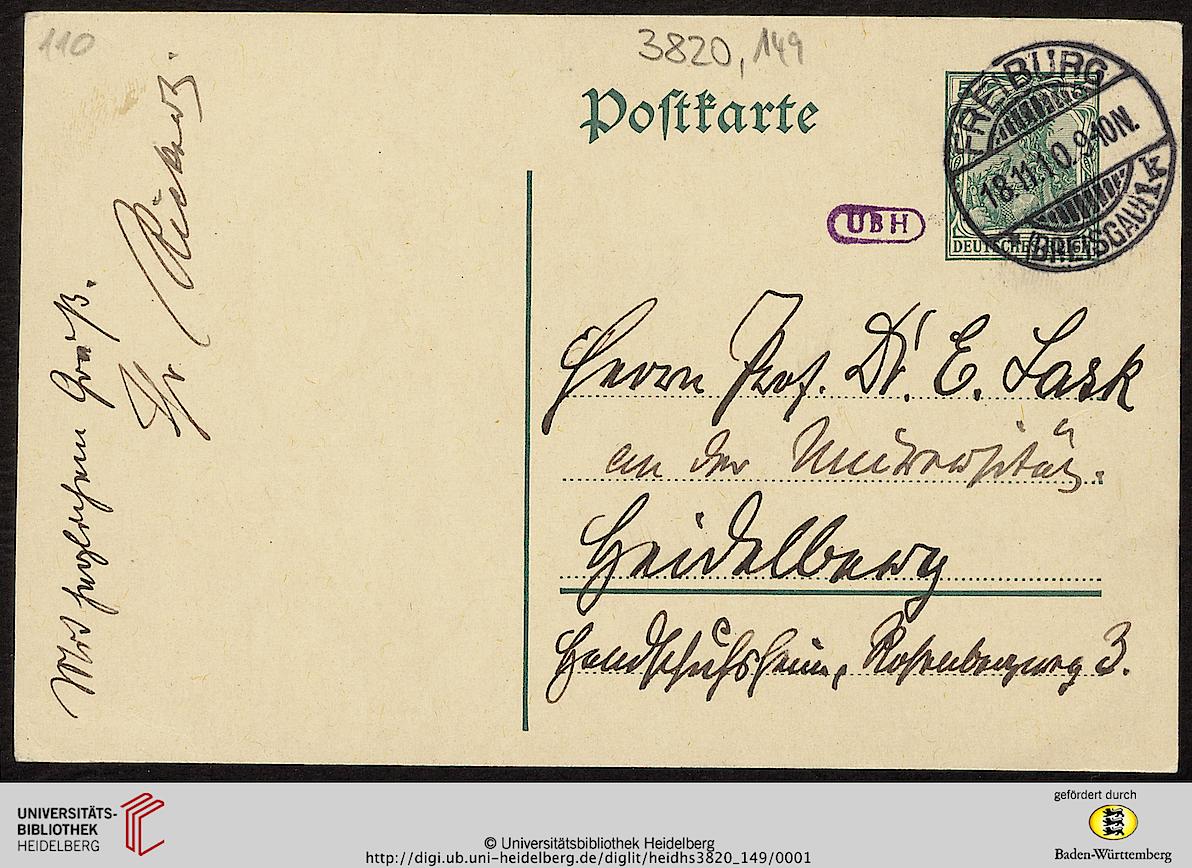 110
3820, 149
Postkarte
FREIBURG
18.11.10. 9-10N.
(BREISGAU) 1k
DEUTSCHES REICH
UBH
Herrn Prof. Dr. E. Lask
an der Universität.
Heidelberg
Handschuhsheim, Rosenbergweg 3.
Mit herzlichem Gruß.
Ihr Rickert.
UNIVERSITÄTS-
BIBLIOTHEK
HEIDELBERG
© Universitätsbibliothek Heidelberg
http://digi.ub.uni-heidelberg.de/diglit/heidhs3820_149/0001
gefördert durch
Baden-Württemberg